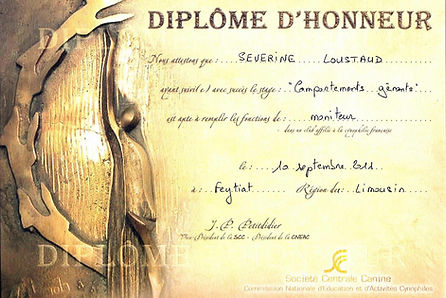 DIPLÔME D'HONNEUR
Nous attestons que : SEVERINE LOUSTAUD
ayant suivi(e) avec succès le stage : "Comportements gênants"
est apte à remplir les fonctions de : moniteur
dans un club affilié à la cynophilie française
le : 10 septembre 2011
à : Feytiat Région de : Limousin
J.-P. Petitdidier
Vice-Président de la SCC - Président de la CNEAC
DIPLÔME
Société Centrale Canine
Commission Nationale d'Education et d'Activités Cynophiles